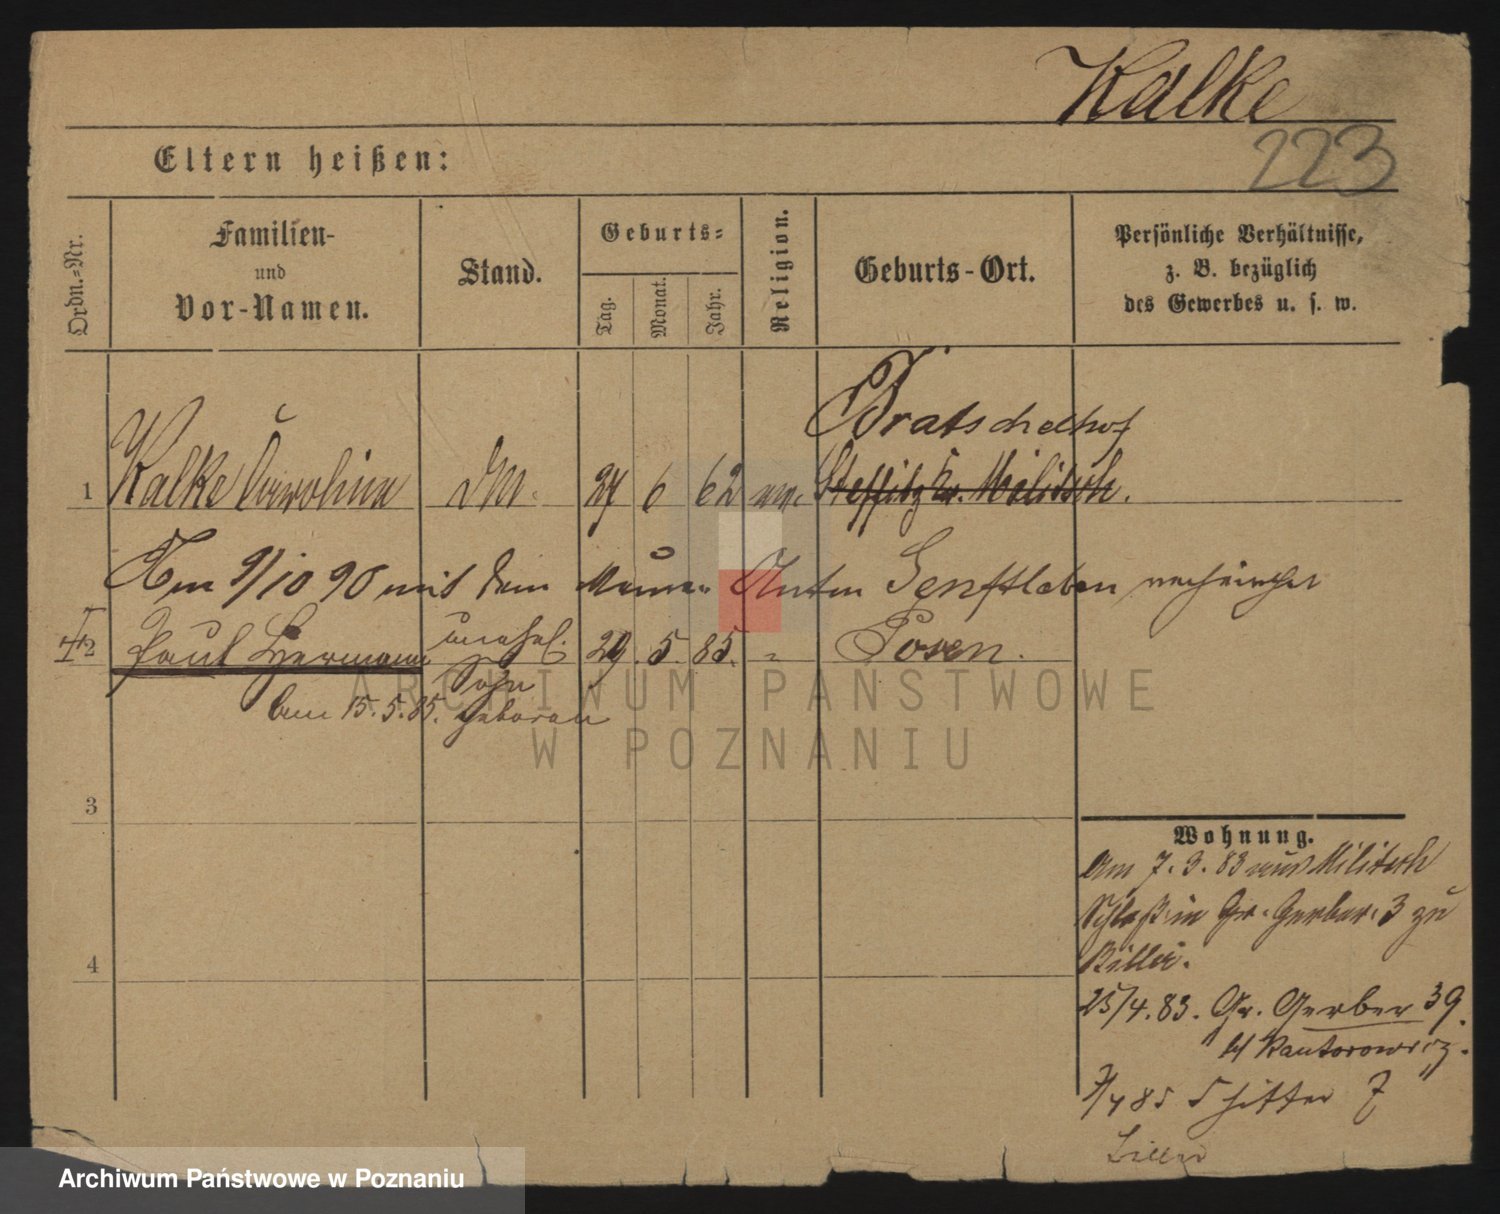 Kalke
223
Eltern heißen:
Ordn.-Nr.
Familien-
und
Vor-Namen.
Stand.
Geburts-
Tag.
Monat.
Jahr.
Religion.
Geburts-Ort.
Persönliche Verhältnisse,
z. B. bezüglich
des Gewerbes u. s. w.
Bratschelhof
1 Kalke 27 6 62 Militsch.
Am 9/10 90 mit dem Maurer Anton Senftleben
2 Paul Hermann unehel. 29. 5. 85. " Posen.
Sohn
am 15. 5. 85. geboren
ARCHIWUM PAŃSTWOWE
W POZNANIU
3
4
Wohnung.
Am 7. 3. 83 aus Militsch
Schloß in Gr. Gerber. 3 zu
25/4. 83. Gr. Gerber 39
b/ Kantorowicz.
7/4 85 7
Archiwum Państwowe w Poznaniu